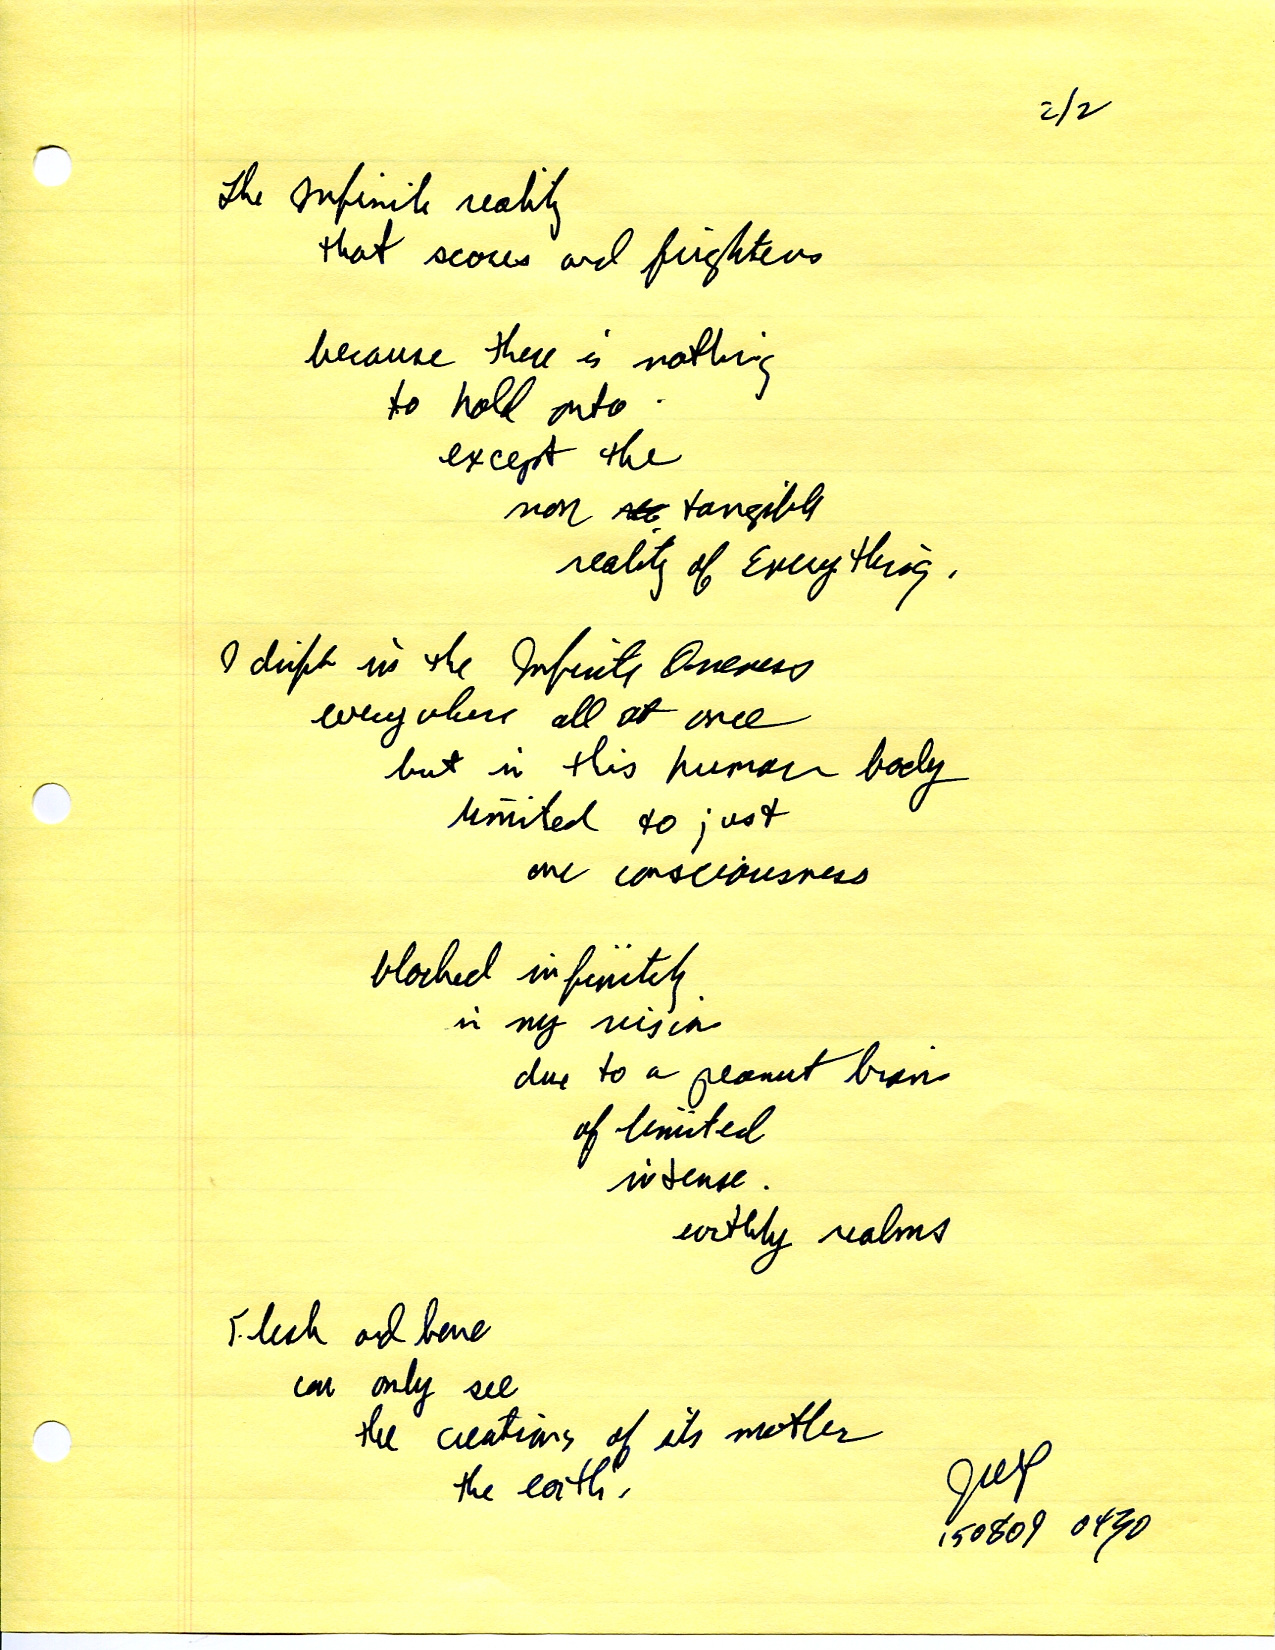 2/2
The Infinite reality
that scares and frightens
because there is nothing
to hold onto
except the
non tangible
reality of Everything.
I drift in the Infinite Oneness
everywhere all at once
but in this human body
limited to just
one consciousness
blocked infinitely
in my vision
due to a peanut brain
of limited
intense
earthly realms
Flesh and bone
can only see
the creations of its mother
the earth.
150809 0430